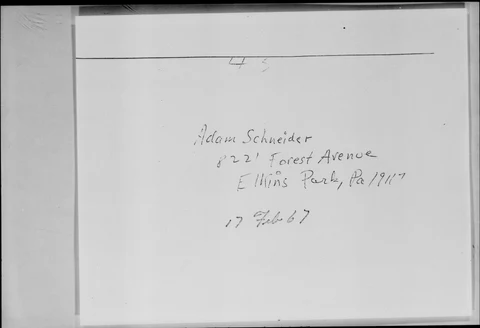 Adam Schneider
8221 Forest Avenue
Elkins Park, Pa 19117
17 Feb 67